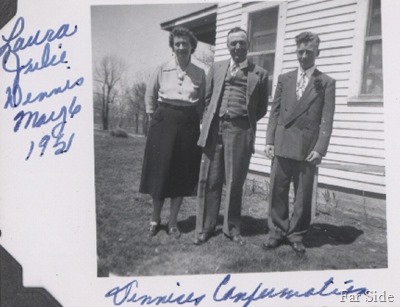 Laura
Julie
Dennis
May 6
1951
Dennises Confirmation
Far Side